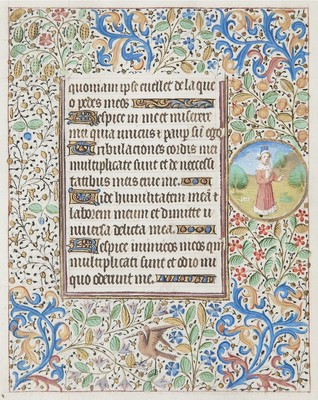 quoniam ipse euellet de laque
o pedes meos
Respice in me et miserere
mei quia vnicus et paup sū ego
Tribulaciones cordis mei
multiplicate sunt et de necessi
tatibus meis erue me
Uide humilitatem meā et
laborem meum et dimitte v
niuersa delicta mea.
Respice inimicos meos qm
multiplicati sunt et odio ini
quo oderunt me.